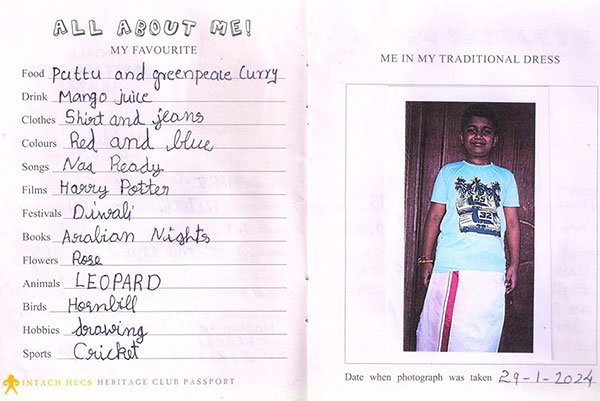 ALL ABOUT ME!
MY FAVOURITE
Food Puttu and greenpeate Curry
Drink Mango juice
Clothes Shirt and jeans
Colours Red and blue
Songs Naa Ready
Films Harry Potter
Festivals Diwali
Books Arabian Nights
Flowers Rose
Animals LEOPARD
Birds Hornbill
Hobbies drawing
Sports Cricket
INTACH HECS HERITAGE CLUB PASSPORT
ME IN MY TRADITIONAL DRESS
Date when photograph was taken 29-1-2024